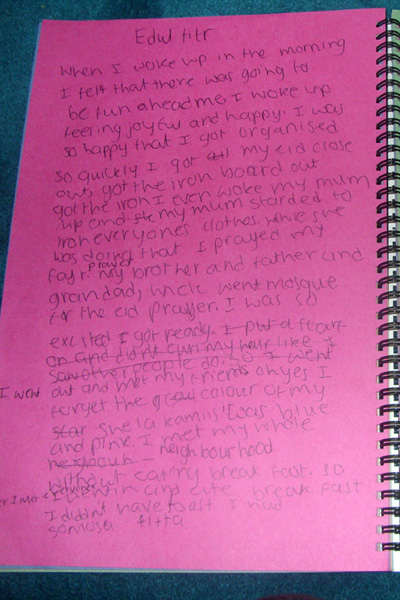 Edul fitr
when I woke up in the morning
I felt that there was going to
be fun ahead me. I woke up
feeling joyful and happy. I was
so happy that I got organised
so quickly I got my eid close
out, got the iron board out
got the iron I even woke my mum
up and my mum starded to
iron everyones clothes. while she
was doing that I prayed my
fajr prayer. my brother and father and
grandad, uncle went mosque
for the eid prayer. I was so
excited I got ready. I put a
on and didnt my hair like I
saw other people do. so I went
I went out and met my friends oh yes I
forget the colour of my
star shela kamiis! was blue
and pink. I met my whole
neighbourhood
without eating break fast. so
I in and ete break fast
I diddnt have toast I had
somosa fitta